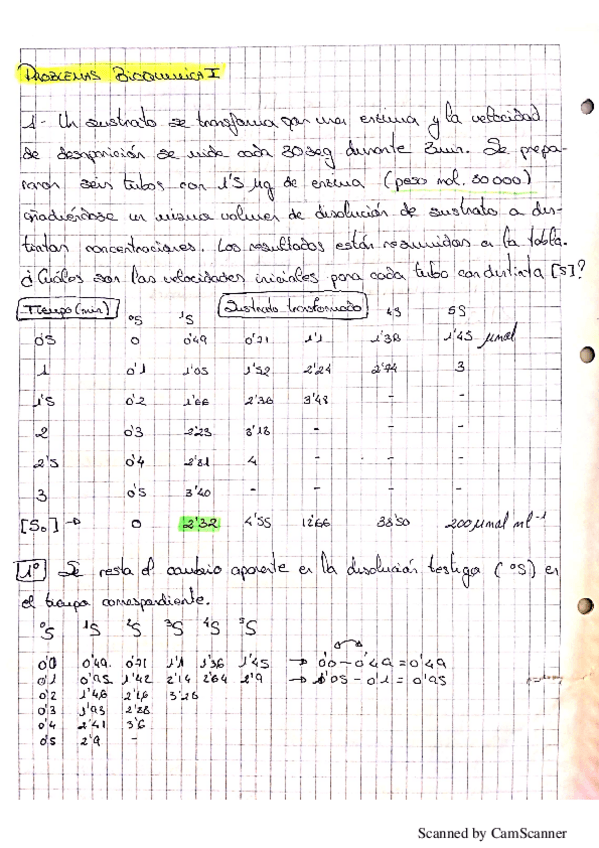 PROBLEMAS BIOQUIMICA I
1.- Un sustrato se transforma por una enzima y la velocidad
de desaparición se mide cada 30 seg durante 3 min. Se prepa-
raron seis tubos con 1'5 µg de enzima (peso mol. 30 000)
añadiéndose un mismo volumen de disolución de sustrato a dis-
tintas concentraciones. Los resultados están resumidos en la tabla.
¿Cuáles son las velocidades iniciales para cada tubo con distinta [S]?
Tiempo (min) ⁰S ¹S Sustrato transformado 4S 5S
0'5 0 0'49 0'71 1'1 1'38 1'45 µmol
1 0'1 1'05 1'52 2'24 2'74 3
1'5 0'2 1'66 2'36 3'48 - -
2 0'3 2'23 3'18 - - -
2'5 0'4 2'81 4 - - -
3 0'5 3'40 - - - -
[S₀] → 0 2'32 4'55 12'66 38'50 200 µmol ml⁻¹
1º Se resta el cambio aparente en la disolución testigo (⁰S) en
el tiempo correspondiente.
⁰S ¹S ²S ³S ⁴S ⁵S
0'0 0'49 0'71 1'1 1'36 1'45 → 0'0 - 0'49 = 0'49
0'1 0'95 1'42 2'14 2'64 2'9 → 1'05 - 0'1 = 0'95
0'2 1'46 2'16 3'28
0'3 1'93 2'88
0'4 2'41 3'6
0'5 2'9 -
Scanned by CamScanner